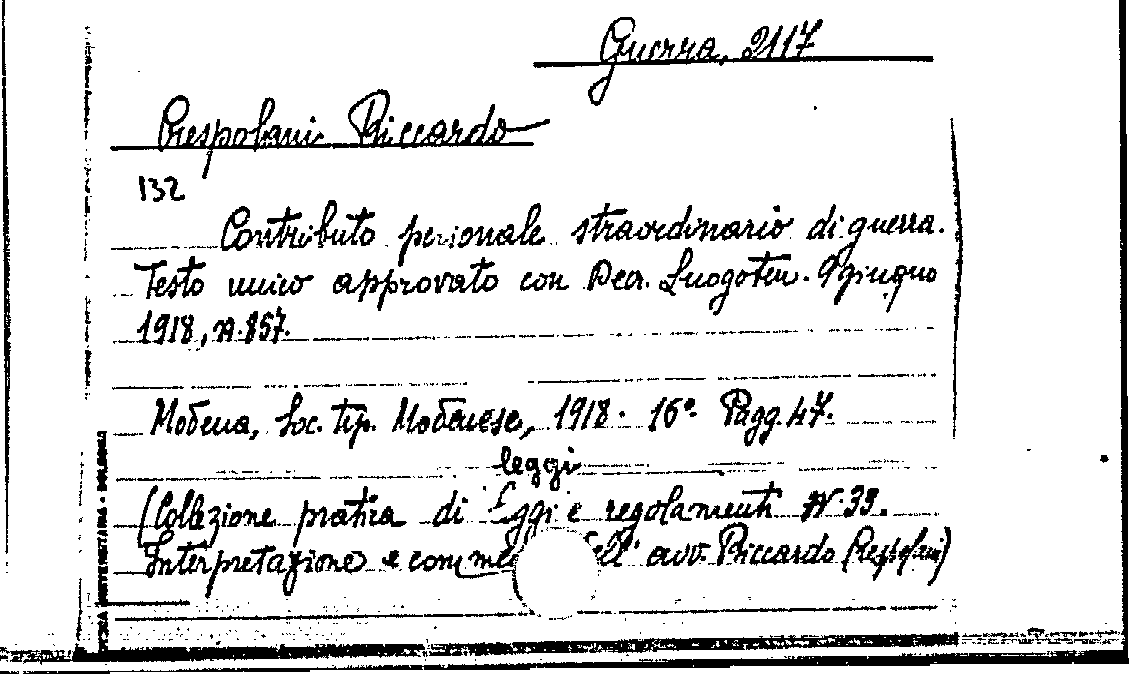 Guerra, 2117
Crespolani Riccardo
132
Contributo personale straordinario di guerra.
Testo unico approvato con Decr. Luogoten. 9 giugno
1918, N. 857.
Modena, Soc. tip. Modenese, 1918. 16º. Pagg. 47.
leggi
(Collezione pratica di leggi e regolamenti N. 39.
Interpretazione e comme dell' avv. Riccardo Crespolani)